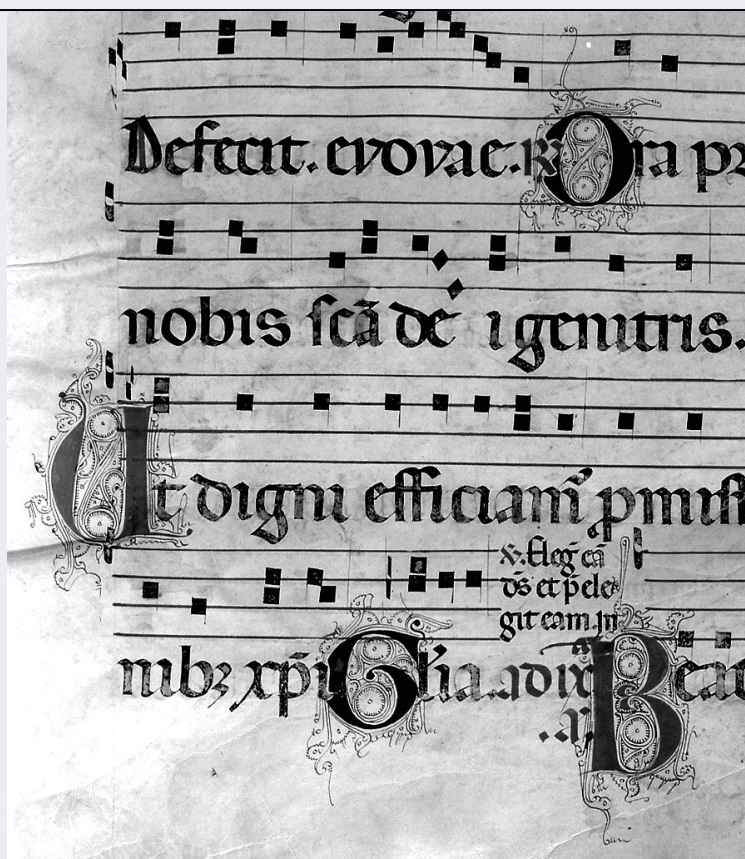 Defecit. evovae. ℟ Ora pr
nobis scā dei genitris.
Ut digni efficiam̄ ꝓmiss
℣. Elegit eā
d̄s et p̄ele
git eam. in
nibꝫ xp̄i Gl̄ia. adix
.a. Beat